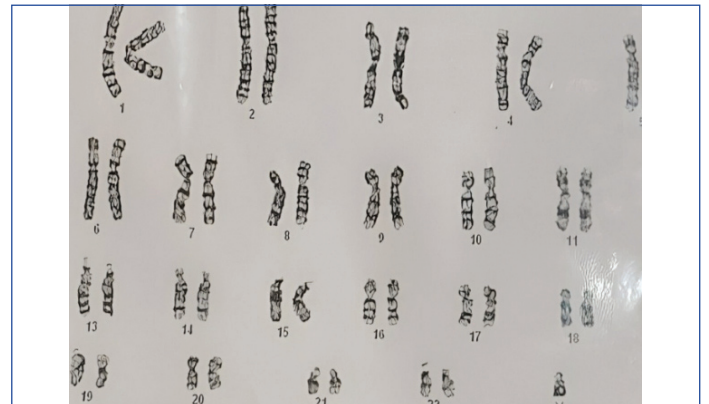 1 2 3 4 5
6 7 8 9 10 11
13 14 15 16 17 18
19 20 21 22